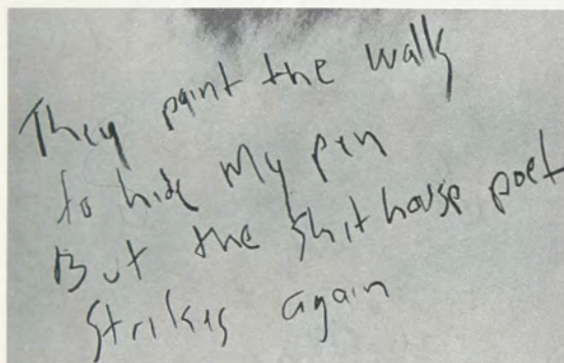 They paint the walls
to hide My pen
But the Shithouse poet
Strikes again